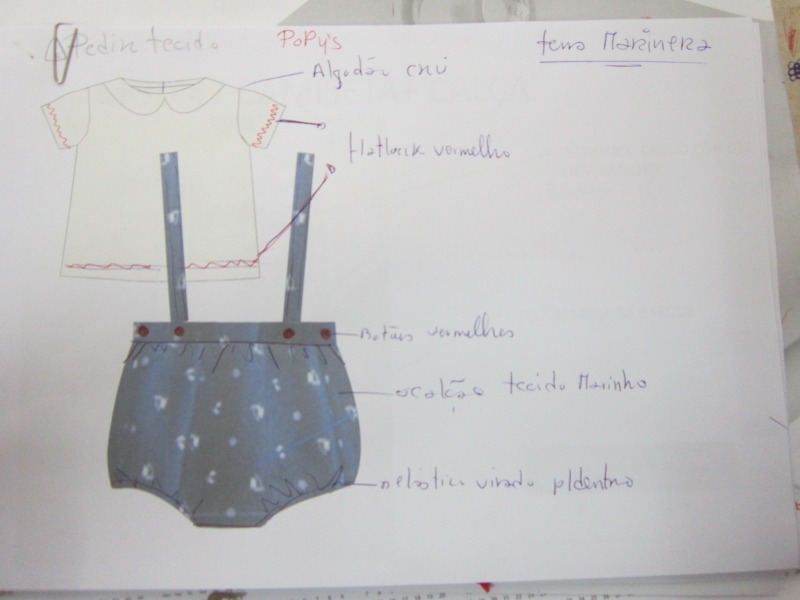 Pedir tecido
POPY'S
tema Marinera
Algodão crú
Flatlock vermelho
Botões vermelhos
calção tecido Marinho
elástico virado p/dentro